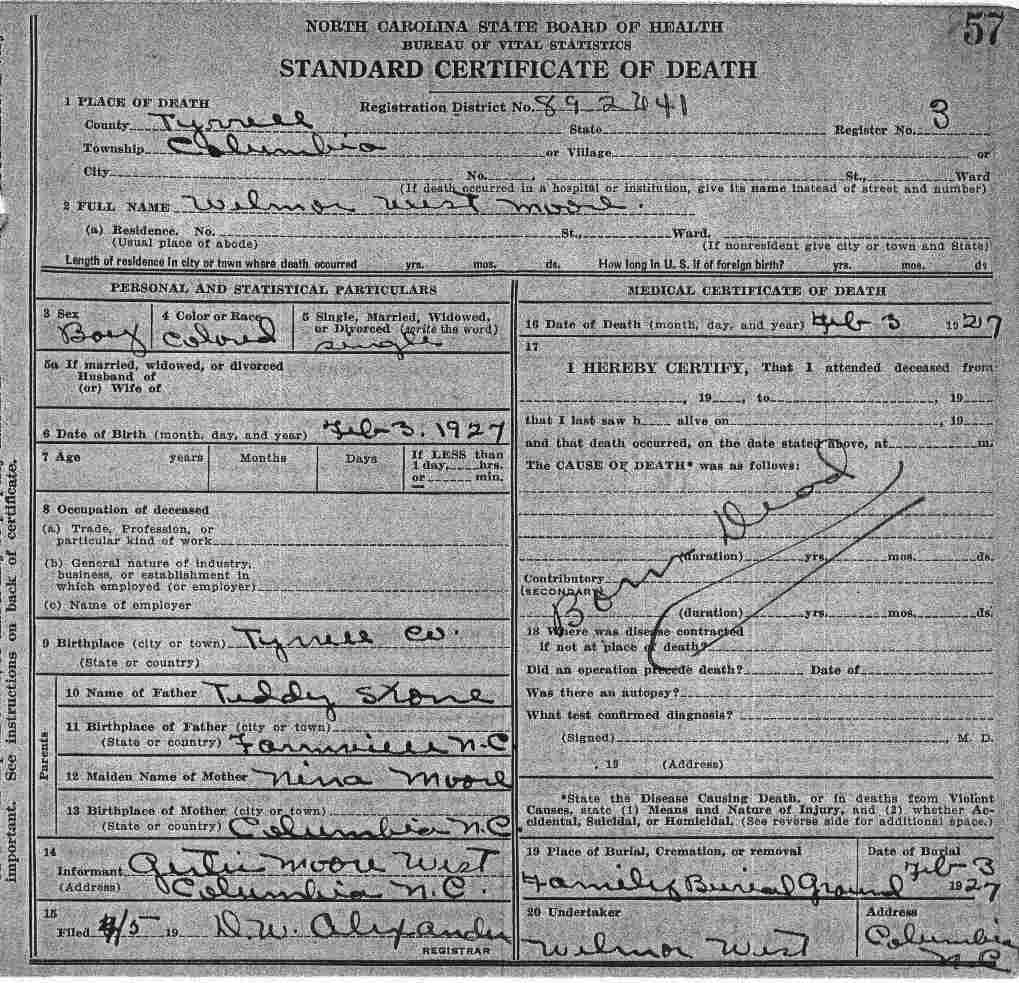 57
NORTH CAROLINA STATE BOARD OF HEALTH
BUREAU OF VITAL STATISTICS
STANDARD CERTIFICATE OF DEATH
1 PLACE OF DEATH
Registration District No. 89 2441
County Tyrrell State Register No. 3
Township Columbia or Village or
City No. , St., Ward
(If death occurred in a hospital or institution, give its name instead of street and number)
2 FULL NAME Wilmor West Moore.
(a) Residence. No. St., Ward.
(Usual place of abode) (If nonresident give city or town and State)
Length of residence in city or town where death occurred yrs. mos. ds. How long in U. S. if of foreign birth? yrs. mos. ds
PERSONAL AND STATISTICAL PARTICULARS
3 Sex
Boy
4 Color or Race
Colored
5 Single, Married, Widowed,
or Divorced (write the word)
single
5a If married, widowed, or divorced
Husband of
(or) Wife of
6 Date of Birth (month, day, and year) Feb 3. 1927
7 Age years Months Days
If LESS than
1 day, hrs.
or min.
8 Occupation of deceased
(a) Trade, Profession, or
particular kind of work
(b) General nature of industry,
business, or establishment in
which employed (or employer)
(c) Name of employer
9 Birthplace (city or town) Tyrrell Co.
(State or country)
Parents
10 Name of Father Teddy Stone
11 Birthplace of Father (city or town)
(State or country) Farmville N.C
12 Maiden Name of Mother Nina Moore
13 Birthplace of Mother (city or town)
(State or country) Columbia N.C
14
Informant Moore West
(Address) Columbia N.C.
15
Filed 4/5 19 D.W. Alexander
REGISTRAR
MEDICAL CERTIFICATE OF DEATH
16 Date of Death (month, day, and year) Feb 3 1927
17
I HEREBY CERTIFY, That I attended deceased from
, 19 , to , 19
that I last saw h alive on , 19
and that death occurred, on the date stated above, at m.
The CAUSE OF DEATH* was as follows:
Born Dead
(duration) yrs. mos. ds.
Contributory
(SECONDARY)
(duration) yrs. mos. ds.
18 Where was disease contracted
if not at place of death?
Did an operation precede death? Date of
Was there an autopsy?
What test confirmed diagnosis?
(Signed) , M. D.
, 19 (Address)
*State the Disease Causing Death, or in deaths from Violent
Causes, state (1) Means and Nature of Injury, and (2) whether Ac-
cidental, Suicidal, or Homicidal. (See reverse side for additional space.)
19 Place of Burial, Cremation, or removal
Family Burial Ground
Date of Burial
Feb 3
1927
20 Undertaker
Wilmor West
Address
Columbia
N.C
important. See instructions on back of certificate.